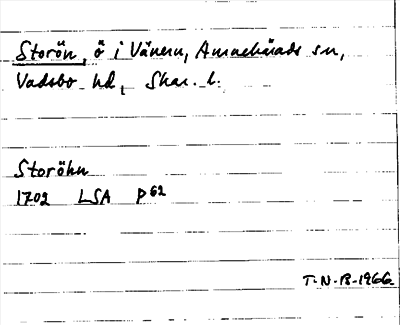 Storön, ö i Vänern, Amnehärads sn,
Vadsbo hd, Skar. l.
Storöhn
1702 LSA P62
T-N-B-1966